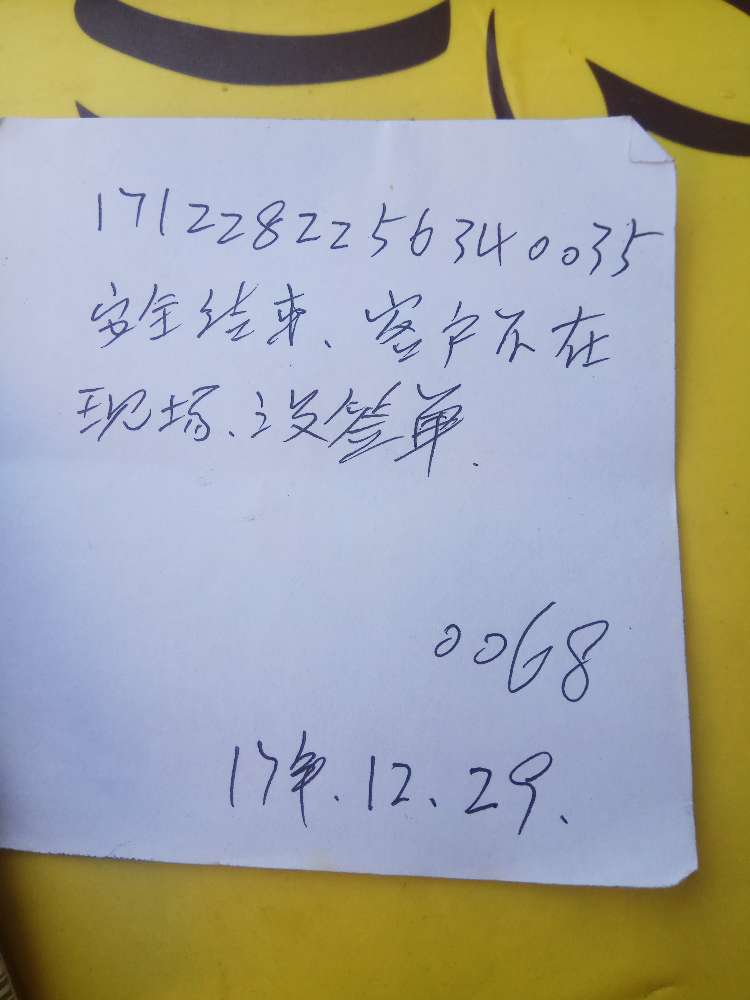 1712282256340035
安全结束、客户不在
现场、没签单.
0068
17年.12.29.